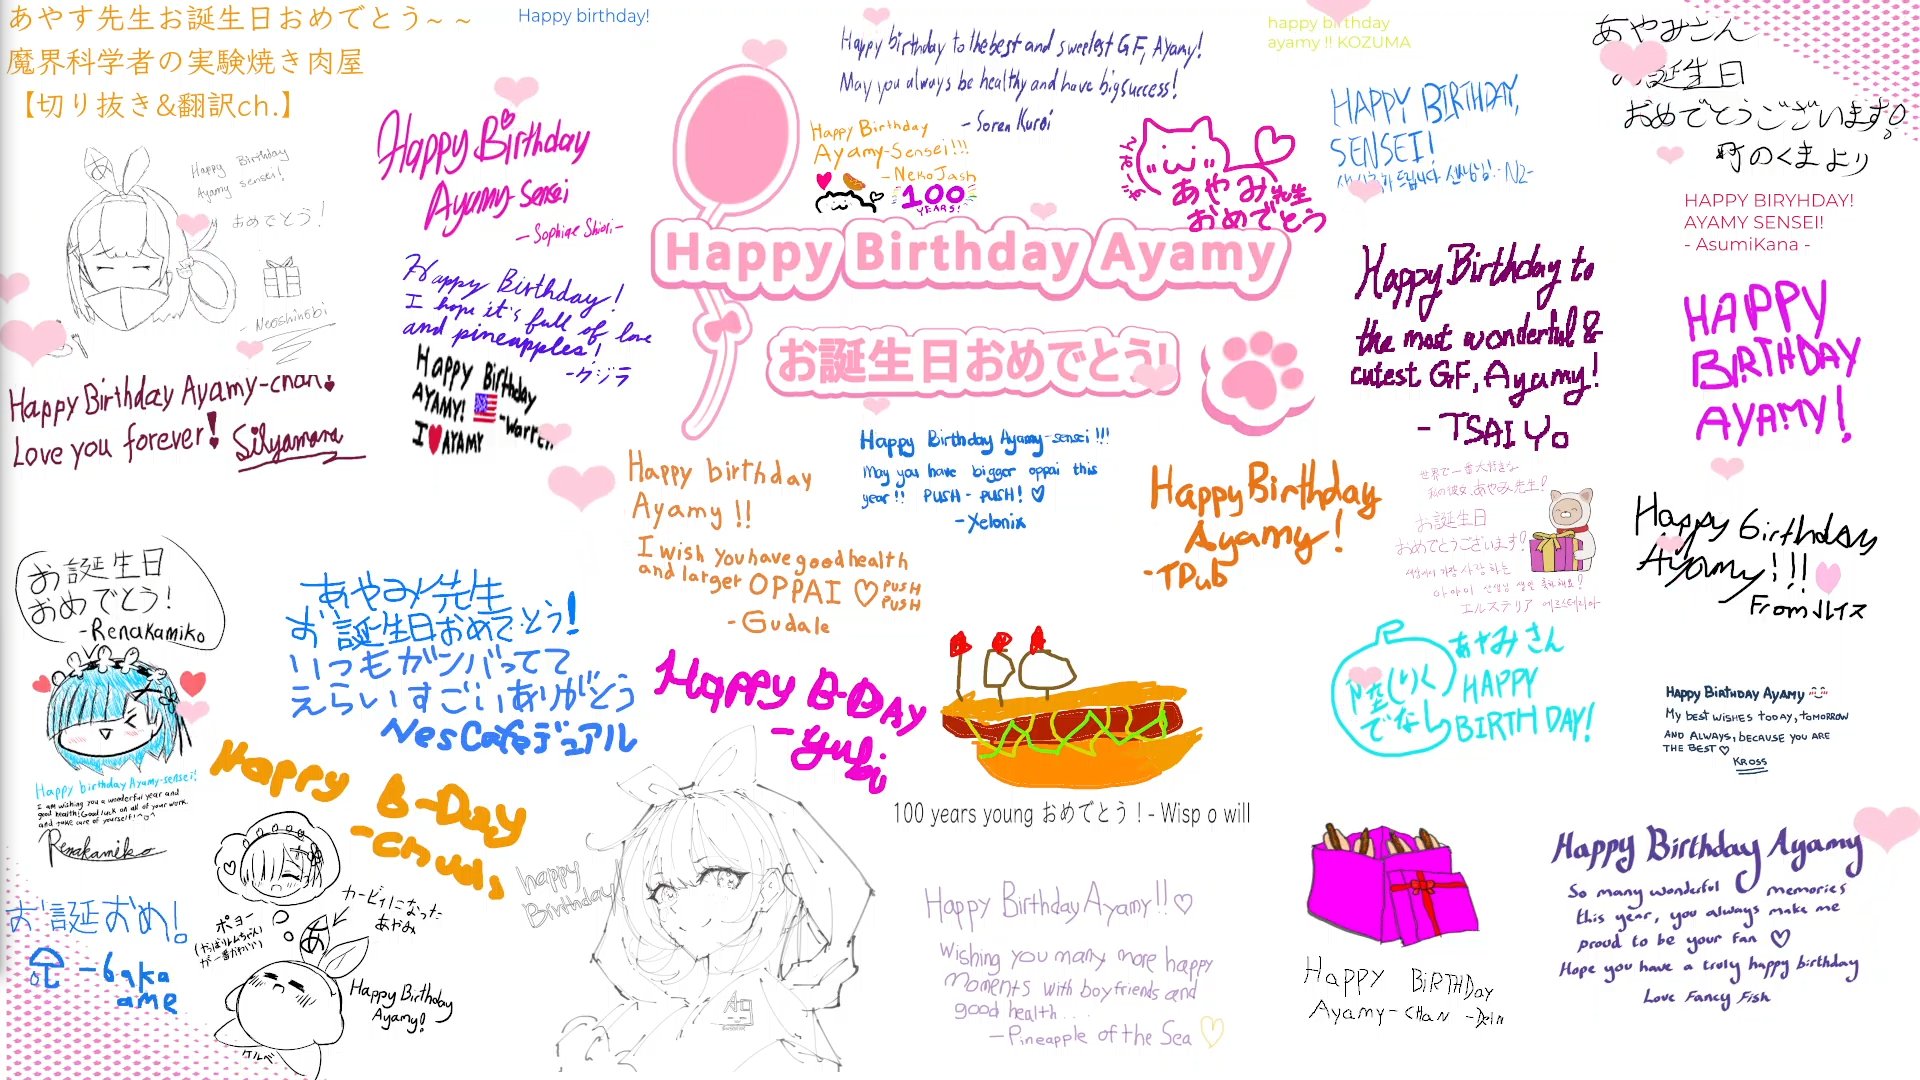 あやす先生お誕生日おめでとう~ ~
魔界科学者の実験焼き肉屋
【切り抜き&翻訳ch.】
Happy birthday!
Happy birthday to the best and sweetest GF, Ayamy!
May you always be healthy and have big success!
- Soren Kuroi
happy birthday
ayamy !! KOZUMA
あやみさん
お誕生日
おめでとうございます!
町のくまより
Happy Birthday
Ayamy sensei!
おめでとう!
- Neoshinobi
Happy Birthday
Ayamy-Sensei
- Sophiae Shiori -
Happy Birthday
Ayamy-Sensei!!!
- NekoJash
100
YEARS!
あやみ先生
おめでとう
HAPPY BIRTHDAY,
SENSEI!
- N2-
HAPPY BIRYHDAY!
AYAMY SENSEI!
- AsumiKana -
Happy Birthday Ayamy
お誕生日おめでとう!
Happy Birthday!
I hope it's full of love
and pineapples!
- クジラ
Happy Birthday to
the most wonderful &
cutest GF, Ayamy!
- TSAI Yo
HAPPY
BIRTHDAY
AYAMY!
Happy Birthday Ayamy-chan!
Love you forever! Silyamara
Happy Birthday
AYAMY! -Warren
I AYAMY
Happy birthday
Ayamy !!
I wish you have good health
and larger OPPAI ♡ PUSH
PUSH
- Gudale
Happy Birthday Ayamy-sensei!!!
May you have bigger oppai this
year!! PUSH - PUSH! ♡
- Xelonix
Happy Birthday
Ayamy!
- TDub
世界で一番大好きな
私の彼女、あやみ先生!
お誕生日
おめでとうございます!
エルステリア 에르스테리아
Happy birthday
Ayamy!!!
From ルイス
お誕生日
おめでとう!
- Renakamiko
Happy birthday Ayamy-sensei!
I am wishing you a wonderful year and
good health! Good luck on all of your work.
and take care of yourself! ^o^
Renakamiko
あやみ先生
お誕生日おめでとう!
いつもガンバってて
えらいすごいありがとう
NesCafeデュアル
Happy B-Day
- Yubi
Happy B-Day
- Chuds
100 years young おめでとう！- Wisp o will
あやみさん
HAPPY
BIRTHDAY!
陸(りく)
でなし
Happy Birthday Ayamy
My best wishes today, tomorrow
and always, because you are
the best ♡
Kross
お誕おめ!
- 6aka
ame
カービィになった
あやみ
ポヨー
が一番かわいい)
あ
Happy Birthday
Ayamy!
ケルベ
happy
Birthday!
Happy Birthday Ayamy!! ♡
Wishing you many more happy
moments with boyfriends and
good health...
- Pineapple of the Sea ♡
Happy Birthday
Ayamy-chan - Dein
Happy Birthday Ayamy
So many wonderful memories
this year, you always make me
proud to be your fan ♡
Hope you have a truly happy birthday
Love Fancy Fish